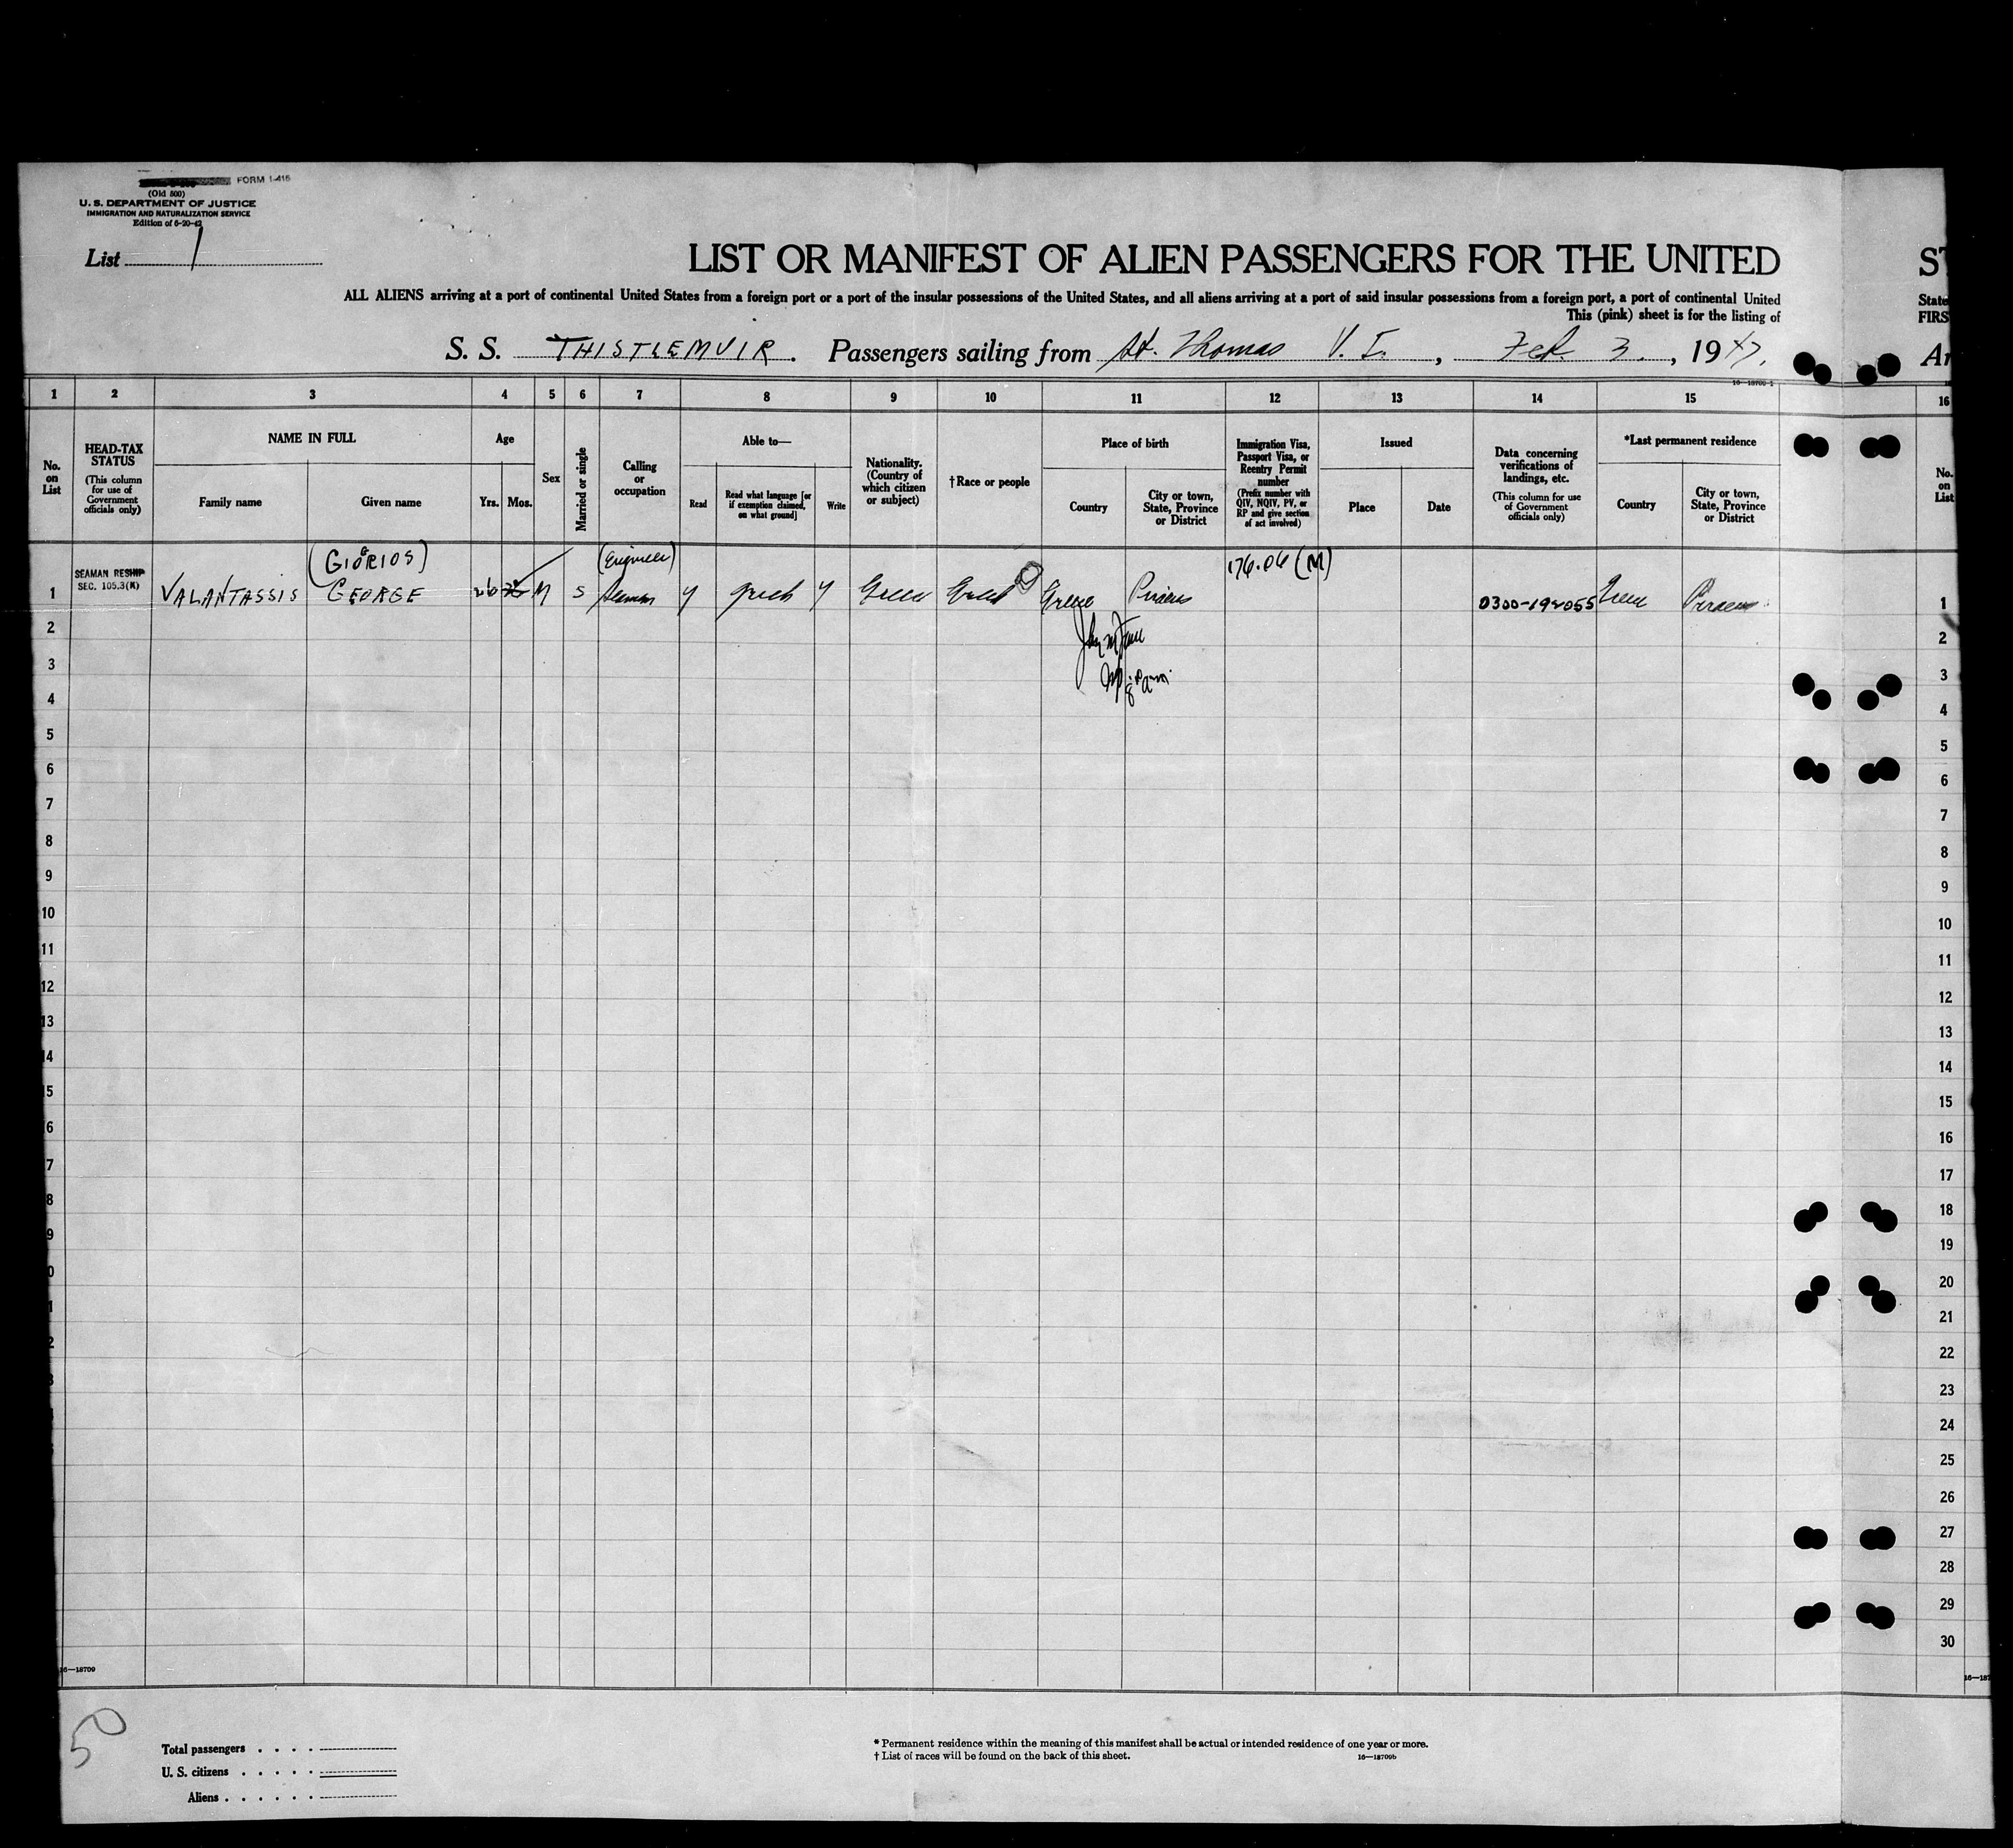 FORM I-415
(Old 500)
U. S. DEPARTMENT OF JUSTICE
IMMIGRATION AND NATURALIZATION SERVICE
Edition of 6-20-42
List 1
LIST OR MANIFEST OF ALIEN PASSENGERS FOR THE UNITED
ST
ALL ALIENS arriving at a port of continental United States from a foreign port or a port of the insular possessions of the United States, and all aliens arriving at a port of said insular possessions from a foreign port, a port of continental United
State
This (pink) sheet is for the listing of
FIRS
S. S. THISTLEMUIR. Passengers sailing from St. Thomas V. I., Feb. 3., 1947.
Ar
16—18709-1
1 2 3 4 5 6 7 8 9 10 11 12 13 14 15 16
No. on List
HEAD-TAX STATUS
(This column for use of Government officials only)
NAME IN FULL
Family name
Given name
Age
Yrs.
Mos.
Sex
Married or single
Calling or occupation
Able to—
Read
Read what language [or if exemption claimed, on what ground]
Write
Nationality. (Country of which citizen or subject)
†Race or people
Place of birth
Country
City or town, State, Province or District
Immigration Visa, Passport Visa, or Reentry Permit number
(Prefix number with QIV, NQIV, PV, or RP and give section of act involved)
Issued
Place
Date
Data concerning verifications of landings, etc.
(This column for use of Government officials only)
*Last permanent residence
Country
City or town, State, Province or District
No. on List
(GIORIOS) (Engineer) 176.06 (M)
SEAMAN RESHIP
SEC. 105.3(K)
1 VALANTASSIS GEORGE 26 M S Seaman y Greek y Greece Greek Greece Piraeus 0300-192055 Greece Piraeus 1
2 2
3 3
4 4
5 5
6 6
7 7
8 8
9 9
10 10
11 11
12 12
13 13
14 14
15 15
16 16
17 17
18 18
19 19
20 20
21 21
22 22
23
24
25
26
27
28
29
30
16—18709
16—187
50
Total passengers
U. S. citizens
Aliens
* Permanent residence within the meaning of this manifest shall be actual or intended residence of one year or more.
† List of races will be found on the back of this sheet.
16—18709b